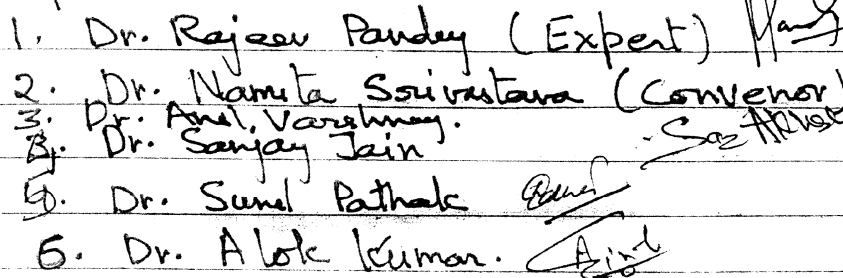 1. Dr. Rajeev Pandey (Expert)
2. Dr. Namita Srivastava (Convenor)
3. Dr. Anil Varshney.
4. Dr. Sanjay Jain
5. Dr. Sunil Pathak
6. Dr. Alok Kumar.